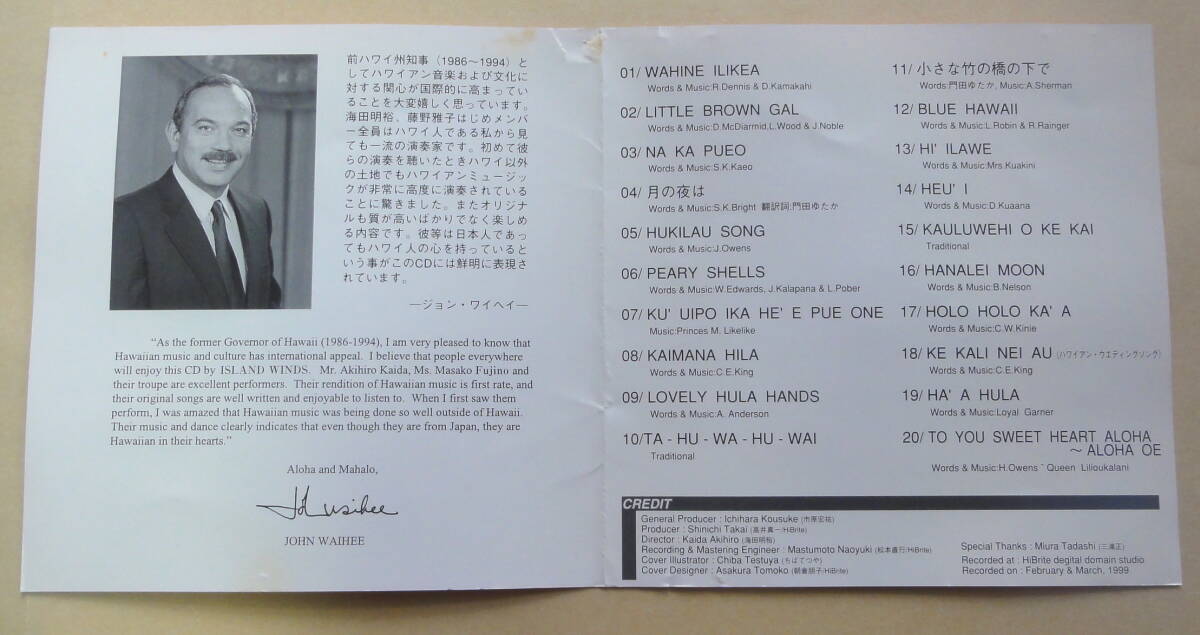 前ハワイ州知事（1986〜1994）と
してハワイアン音楽および文化に
対する関心が国際的に高まってい
ることを大変嬉しく思っています。
海田明裕、藤野雅子はじめメンバ
ー全員はハワイ人である私から見
ても一流の演奏家です。初めて彼
らの演奏を聴いたときハワイ以外
の土地でもハワイアンミュージッ
クが非常に高度に演奏されている
ことに驚きました。またオリジナ
ルも質が高いばかりでなく楽しめ
る内容です。彼等は日本人であっ
てもハワイ人の心を持っていると
いう事がこのCDには鮮明に表現さ
れています。
―ジョン・ワイヘイ―
"As the former Governor of Hawaii (1986-1994), I am very pleased to know that
Hawaiian music and culture has international appeal. I believe that people everywhere
will enjoy this CD by ISLAND WINDS. Mr. Akihiro Kaida, Ms. Masako Fujino and
their troupe are excellent performers. Their rendition of Hawaiian music is first rate, and
their original songs are well written and enjoyable to listen to. When I first saw them
perform, I was amazed that Hawaiian music was being done so well outside of Hawaii.
Their music and dance clearly indicates that even though they are from Japan, they are
Hawaiian in their hearts."
Aloha and Mahalo,
JOHN WAIHEE
01/ WAHINE ILIKEA
Words & Music:R.Dennis & D.Kamakahi
02/ LITTLE BROWN GAL
Words & Music:D.McDiarmid,L.Wood & J.Noble
03/ NA KA PUEO
Words & Music:S.K.Kaeo
04/ 月の夜は
Words & Music:S.K.Bright 翻訳詞:門田ゆたか
05/ HUKILAU SONG
Words & Music:J.Owens
06/ PEARY SHELLS
Words & Music:W.Edwards, J.Kalapana & L.Pober
07/ KU' UIPO IKA HE' E PUE ONE
Music:Princes M. Likelike
08/ KAIMANA HILA
Words & Music:C.E.King
09/ LOVELY HULA HANDS
Words & Music:A. Anderson
10/TA - HU - WA - HU - WAI
Traditional
11/ 小さな竹の橋の下で
Words:門田ゆたか, Music:A.Sherman
12/ BLUE HAWAII
Words & Music:L.Robin & R.Rainger
13/ HI' ILAWE
Words & Music:Mrs.Kuakini
14/ HEU' I
Words & Music:D.Kuaana
15/ KAULUWEHI O KE KAI
Traditional
16/ HANALEI MOON
Words & Music:B.Nelson
17/ HOLO HOLO KA' A
Words & Music:C.W.Kinie
18/ KE KALI NEI AU (ハワイアン・ウエディングソング)
Words & Music:C.E.King
19/ HA' A HULA
Words & Music:Loyal Garner
20/ TO YOU SWEET HEART ALOHA
～ ALOHA OE
Words & Music:H.Owens ~ Queen Lilioukalani
CREDIT
General Producer : Ichihara Kousuke (市原宏祐)
Producer : Shinichi Takai (高井真一/HiBrite)
Director : Kaida Akihiro (海田明裕)
Recording & Mastering Engineer : Mastumoto Naoyuki (松本直行/HiBrite)
Cover Illustrator : Chiba Testuya (ちばてつや)
Cover Designer : Asakura Tomoko (朝倉朋子/HiBrite)
Special Thanks : Miura Tadashi (三浦正)
Recorded at : HiBrite degital domain studio
Recorded on : February & March, 1999